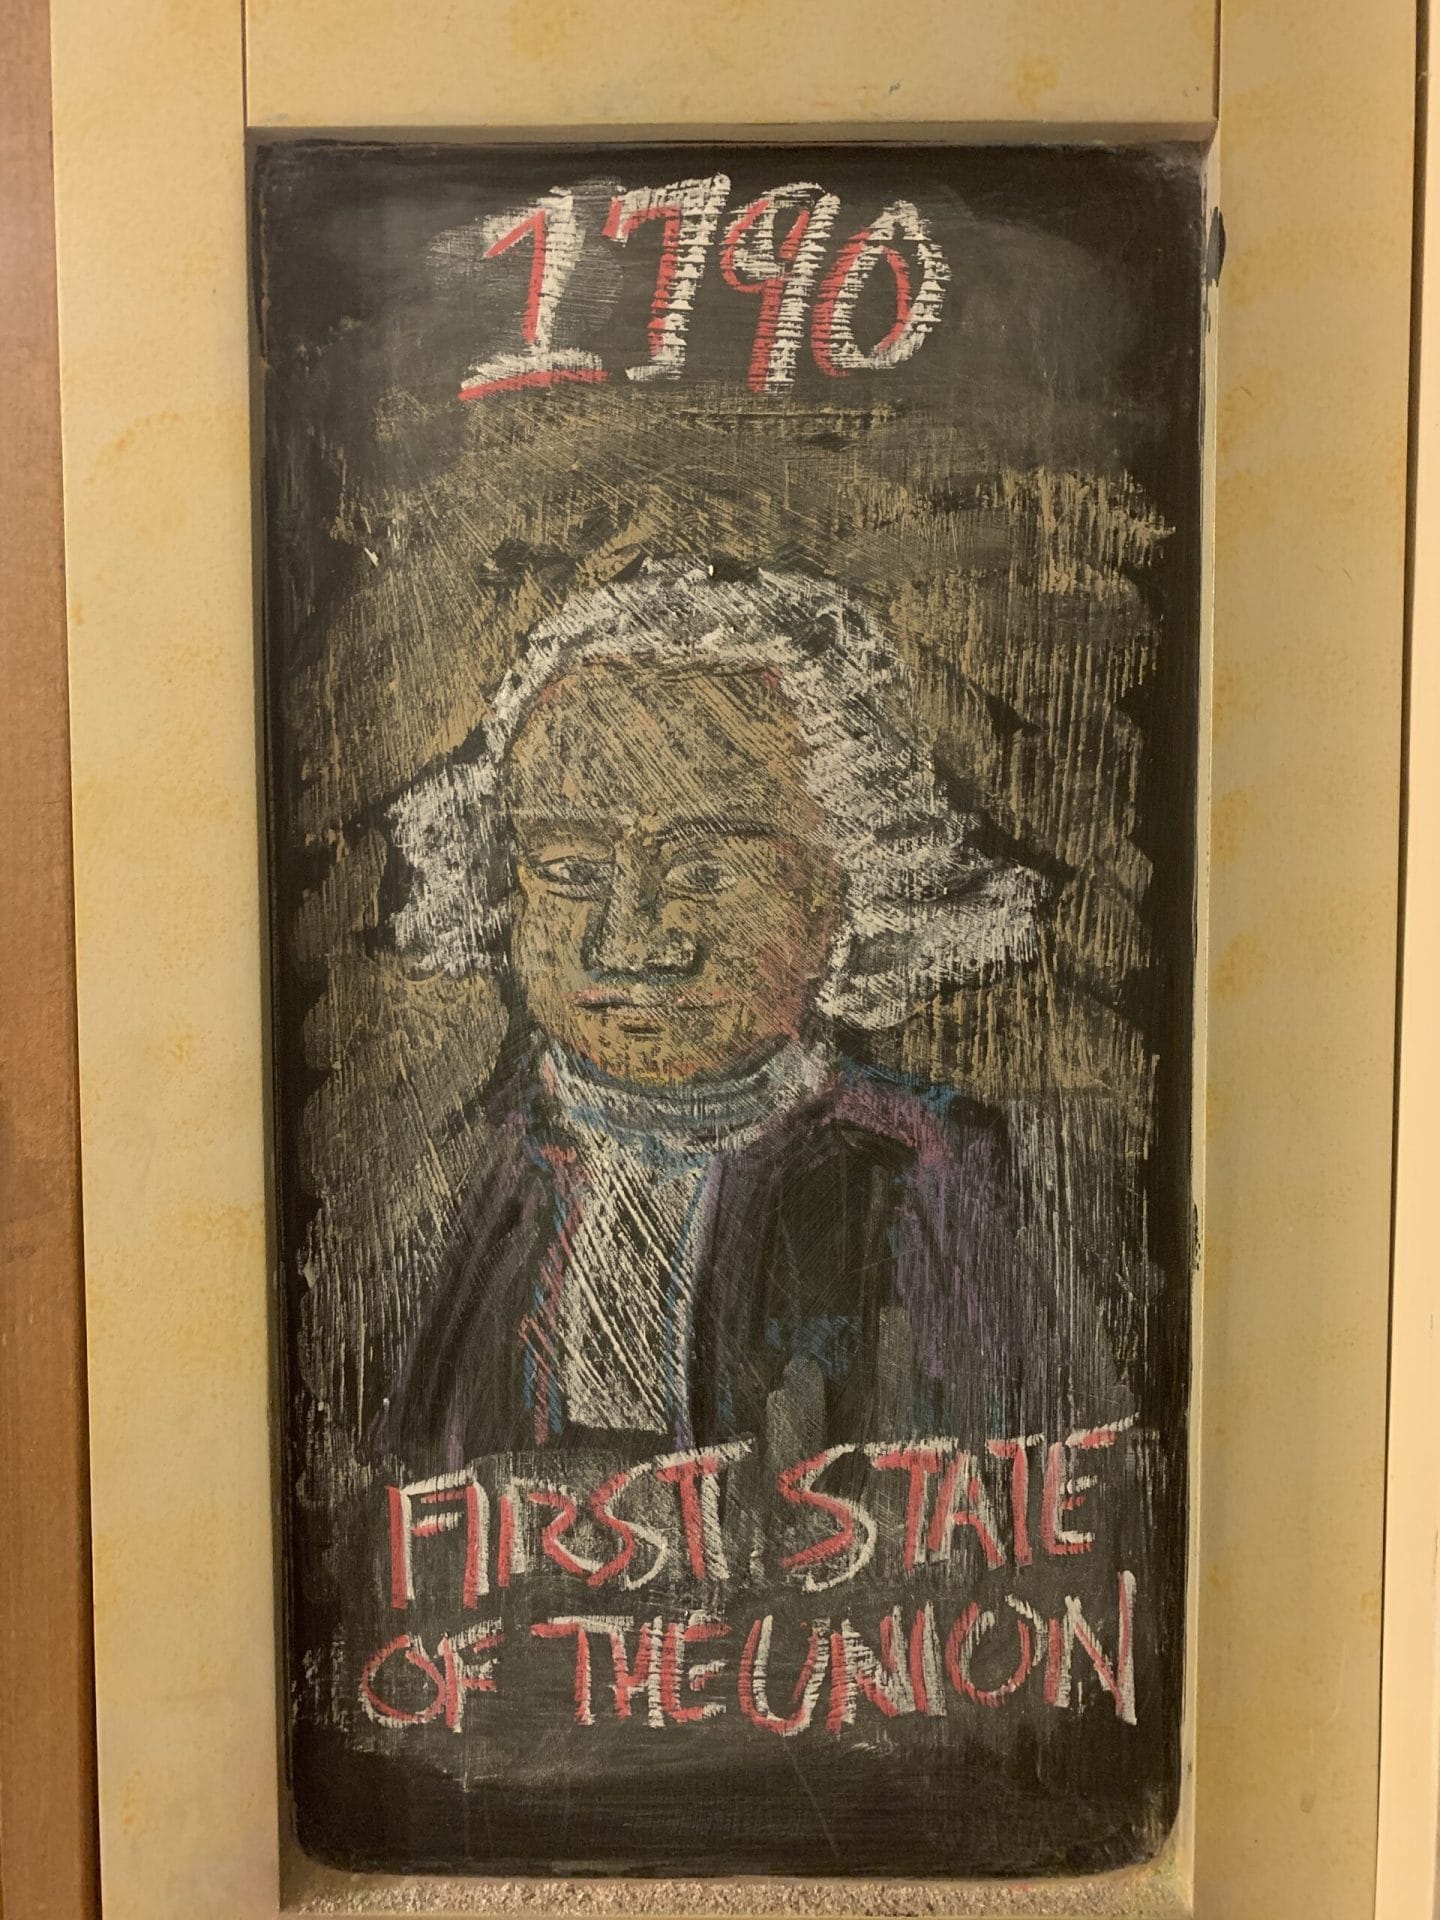 1790
FIRST STATE
OF THE UNION